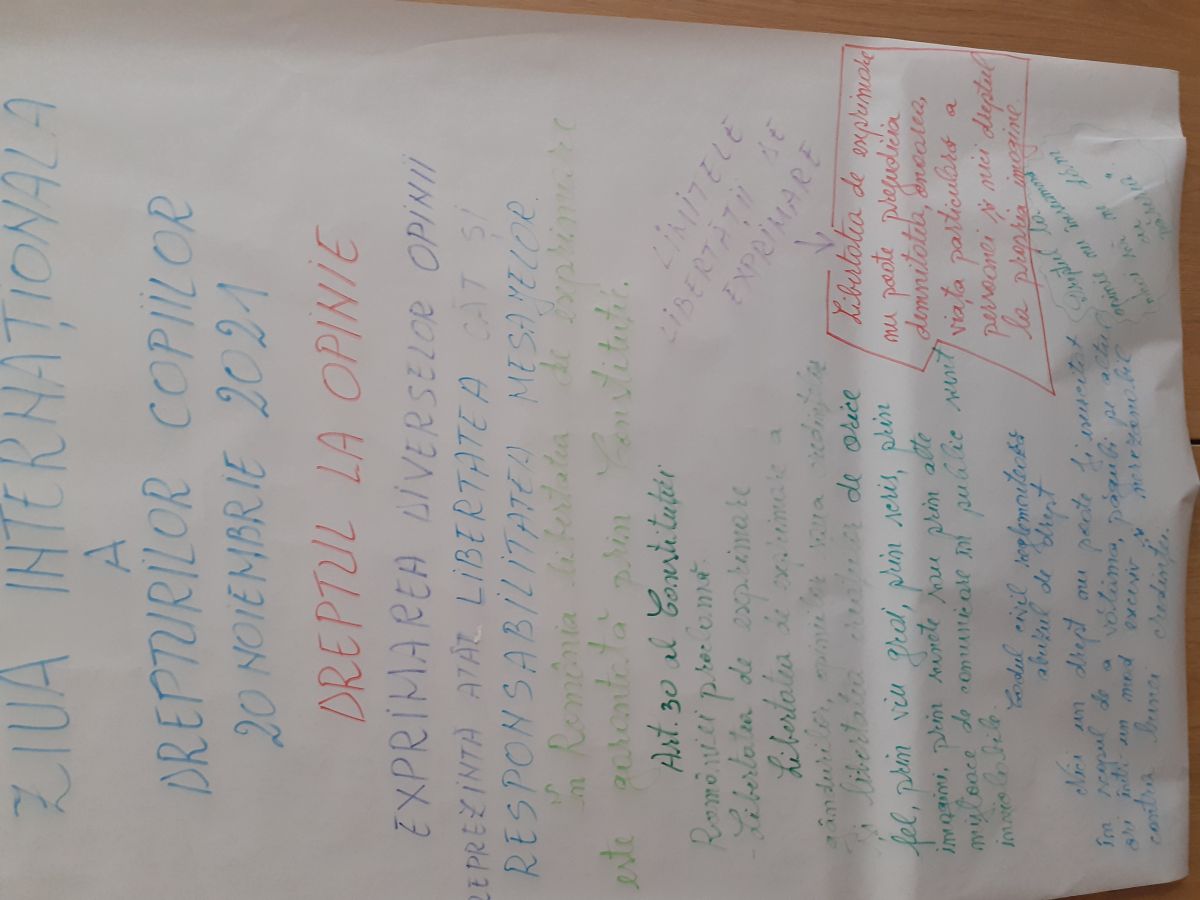 ZIUA INTERNAȚIONALA
A
DREPTURILOR COPIILOR
20 NOIEMBRIE 2021
DREPTUL LA OPINIE
EXPRIMAREA DIVERSELOR OPINII
REPREZINTA ATÂT LIBERTATEA CÂT ȘI
RESPONSABILITATEA MESAJELOR.
în România libertatea de exprimare
este garantată prin Constituție.
Art. 30 al Constituției
României proclamă:
- Libertatea de exprimare
Libertatea de exprimare a
gândurilor, opiniilor sau credințelor
și libertatea creațiilor de orice
fel, prin viu grai, prin scris, prin
imagini, prin sunete sau prin alte
mijloace de comunicare în public sunt
inviolabile.
LIMITELE
LIBERTĂȚII DE
EXPRIMARE
Libertatea de exprimare
nu poate prejudicia
demnitatea, onoarea,
viața particulară a
persoanei și nici dreptul
la propria imagine.
Codul civil reglementează
abuzul de drept
Nici un drept nu poate fi exercitat
în scopul de a vătăma, păgubi pe altul
ori într-un mod excesiv și nerezonabil
contra bunei credințe.
Dreptul la
opinie nu înseamnă